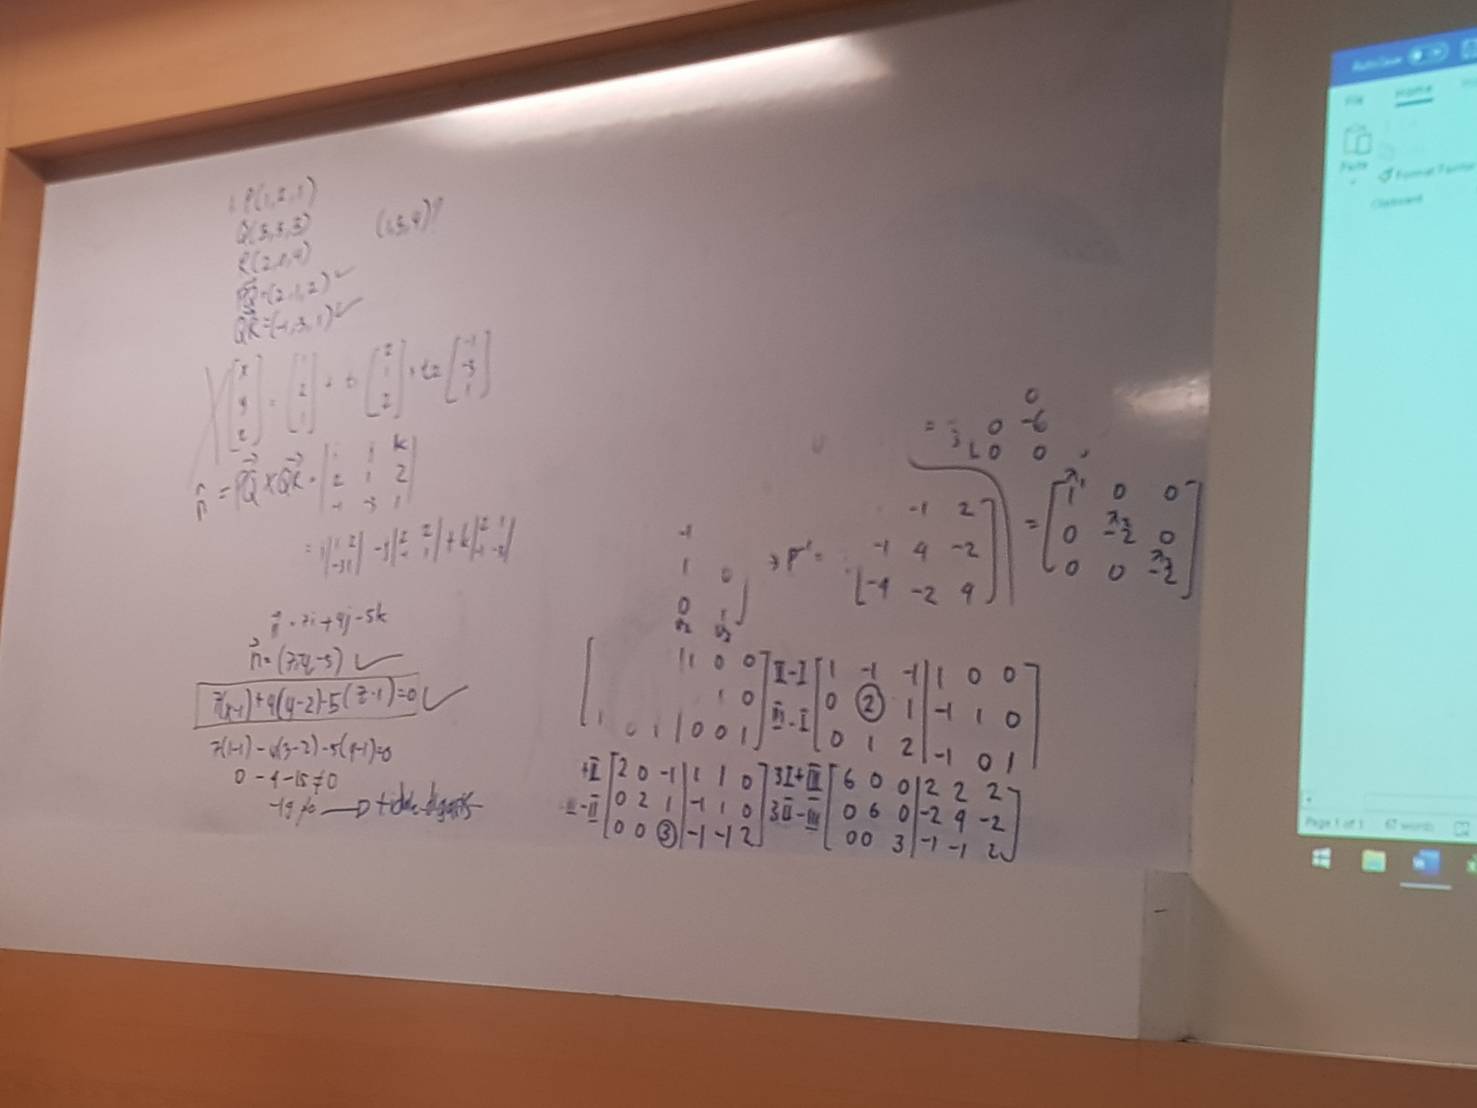 1. P(1,2,1)
Q(3,3,3) (1,3,4)?
R(2,0,4)
PQ=(2,1,2) ✓
QR=(-1,-3,1) ✓
[x y z] = [1 2 1] + t₁ [2 1 2] + t₂ [-1 -3 1]
n = PQ × QR = |i j k
2 1 2
-1 -3 1|
= i|1 2 -3 1| - j|2 2 -1 1| + k|2 1 -1 -3|
n = 7i+4j-5k
n = (7,4,-5) ✓
7(x-1)+4(y-2)-5(z-1)=0 ✓
7(1-1)-4(3-2)-5(4-1)=0
0-4-15≠0
-19≠0 → tidak
0
= 0 -6
0 0
-1
1 0
0 1
→ P⁻¹ =
-1 2
-1 4 -2
-4 -2 4
= [λ₁ 1 0 0
0 λ₂ -2 0
0 0 λ₃ -2]
| 1 0 0
1 0
1 0 1 | 0 0 1]
II-I [1 -1 -1 | 1 0 0
III-I 0 2 1 | -1 1 0
0 1 2 | -1 0 1]
+II [2 0 -1 | 1 1 0
-II 0 2 1 | -1 1 0
0 0 3 | -1 -1 2]
3I+III [6 0 0 | 2 2 2
3II-III 0 6 0 | -2 4 -2
0 0 3 | -1 -1 2]
AutoSave
File Home
Paste
Format Painter
Clipboard
Page 1 of 1 67 words